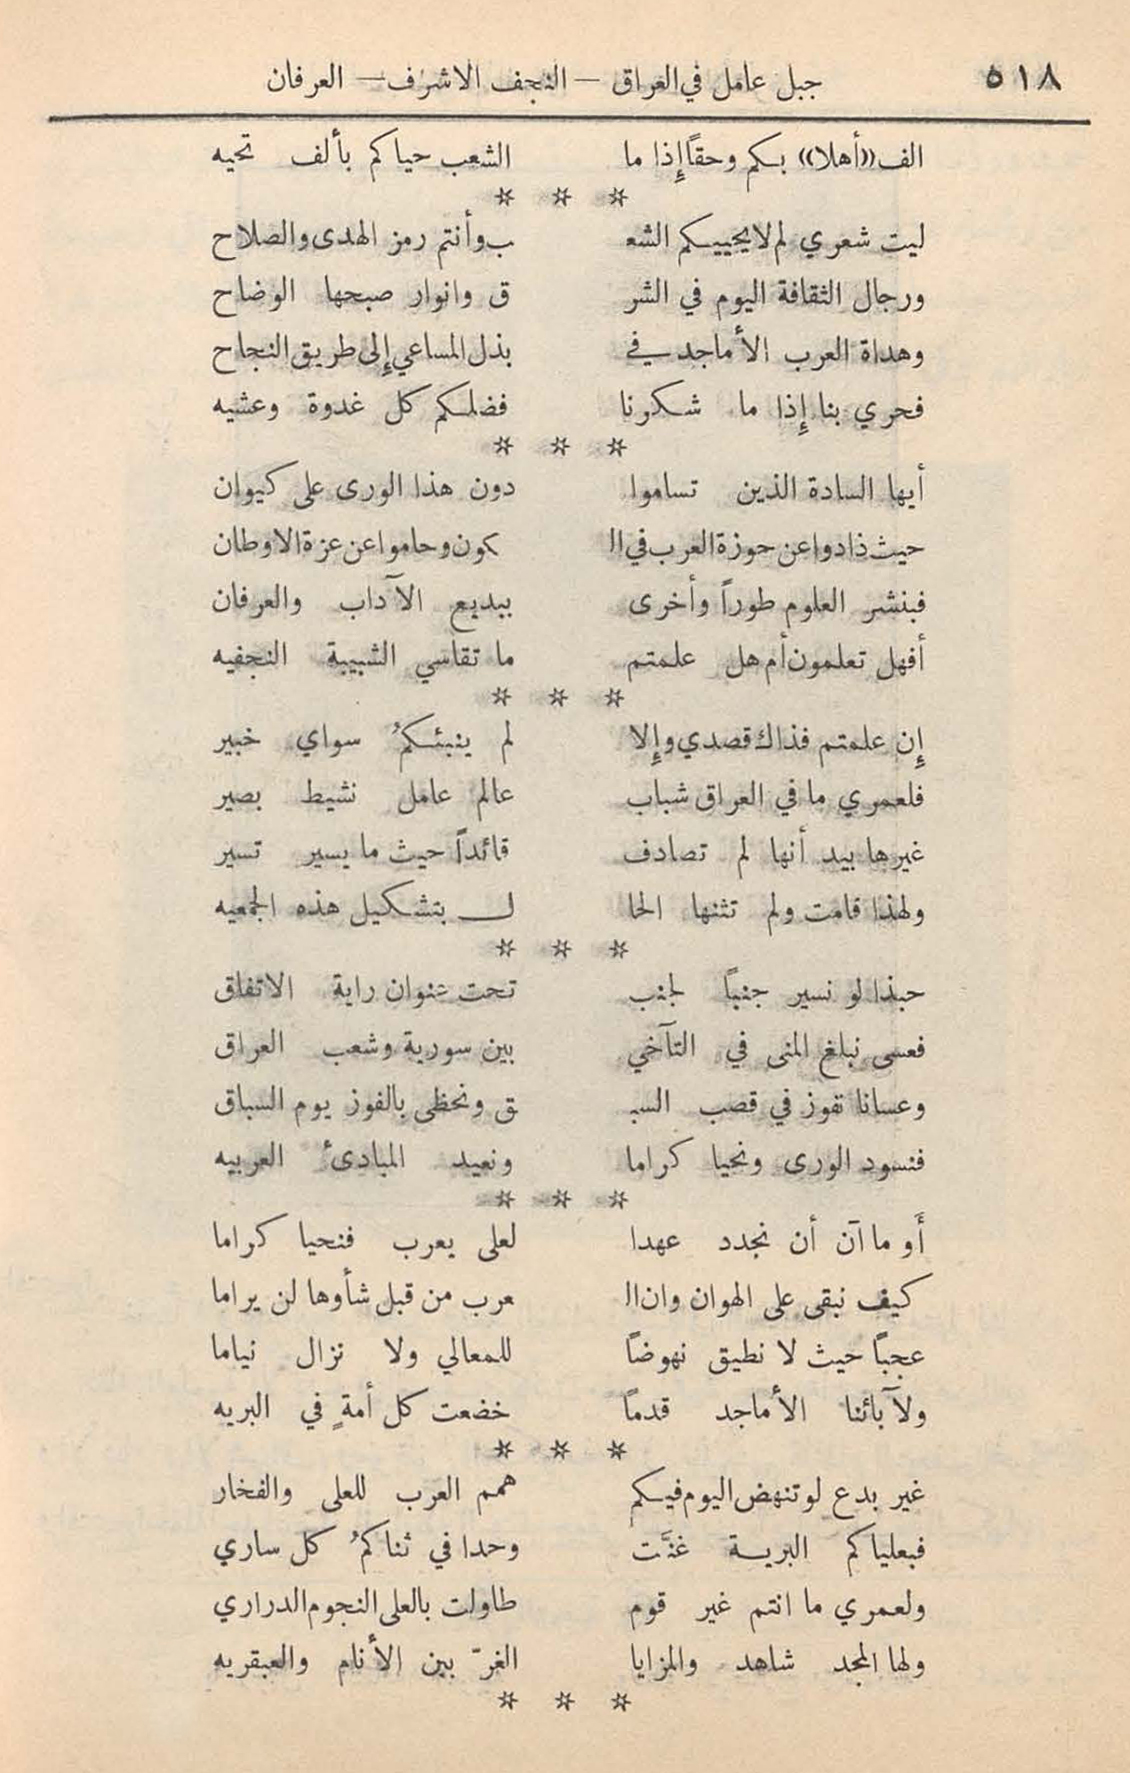 ٥١٨ جبل عامل في العراق — النجف الاشرف — العرفان
الف ((أهلا)) بكم وحقاً إذا ما الشعب حياكم بألف تحيه
* * *
ليت شعري لم لا يحييكم الشعـ ـب وأنتم رمز الهدى والصلاح
ورجال الثقافة اليوم في الشر ق وانوار صبحها الوضاح
وهداة العرب الأماجد في بذل المساعي إلى طريق النجاح
فحري بنا إذا ما شكرنا فضلكم كل غدوة وعشيه
* * *
أيها السادة الذين تساموا دون هذا الورى على كيوان
حيث ذادوا عن حوزة العرب في الـ كون وحاموا عن عزة الاوطان
فبنشر العلوم طوراً وأخرى ببديع الآداب والعرفان
أفهل تعلمون أم هل علمتم ما تقاسي الشبيبة النجفيه
* * *
إن علمتم فذاك قصدي وإلا لم ينبئكمُ سواي خبير
فلعمري ما في العراق شباب عالم عامل نشيط بصير
غيرها بيد أنها لم تصادف قائداً حيث ما يسير تسير
ولهذا قامت ولم تثنها الحا ل بتشكيل هذه الجمعيه
* * *
حبذا لو نسير جنباً لجنب تحت عنوان راية الاتفاق
فعسى نبلغ المنى في التآخي بين سورية وشعب العراق
وعسانا نفوز في قصب السبـ ـق ونحظى بالفوز يوم السباق
فنسود الورى ونحيا كراما ونعيد المبادئ العربيه
* * *
أَو ما آن أن نجدد عهدا لعلى يعرب فنحيا كراما
كيف نبقى على الهوان وان الـ عرب من قبل شأوها لن يراما
عجباً حيث لا نطيق نهوضاً للمعالي ولا نزال نياما
ولآبائنا الأماجد قدماً خضعت كل أمةٍ في البريه
* * *
غير بدع لو تنهض اليوم فيكم همم العرب للعلى والفخار
فبعلياكم البرية غنَّت وحدا في ثناكمُ كل ساري
ولعمري ما انتم غير قوم طاولت بالعلى النجوم الدراري
ولها المجد شاهد والمزايا الغرّ بين الأنام والعبقريه
* * *